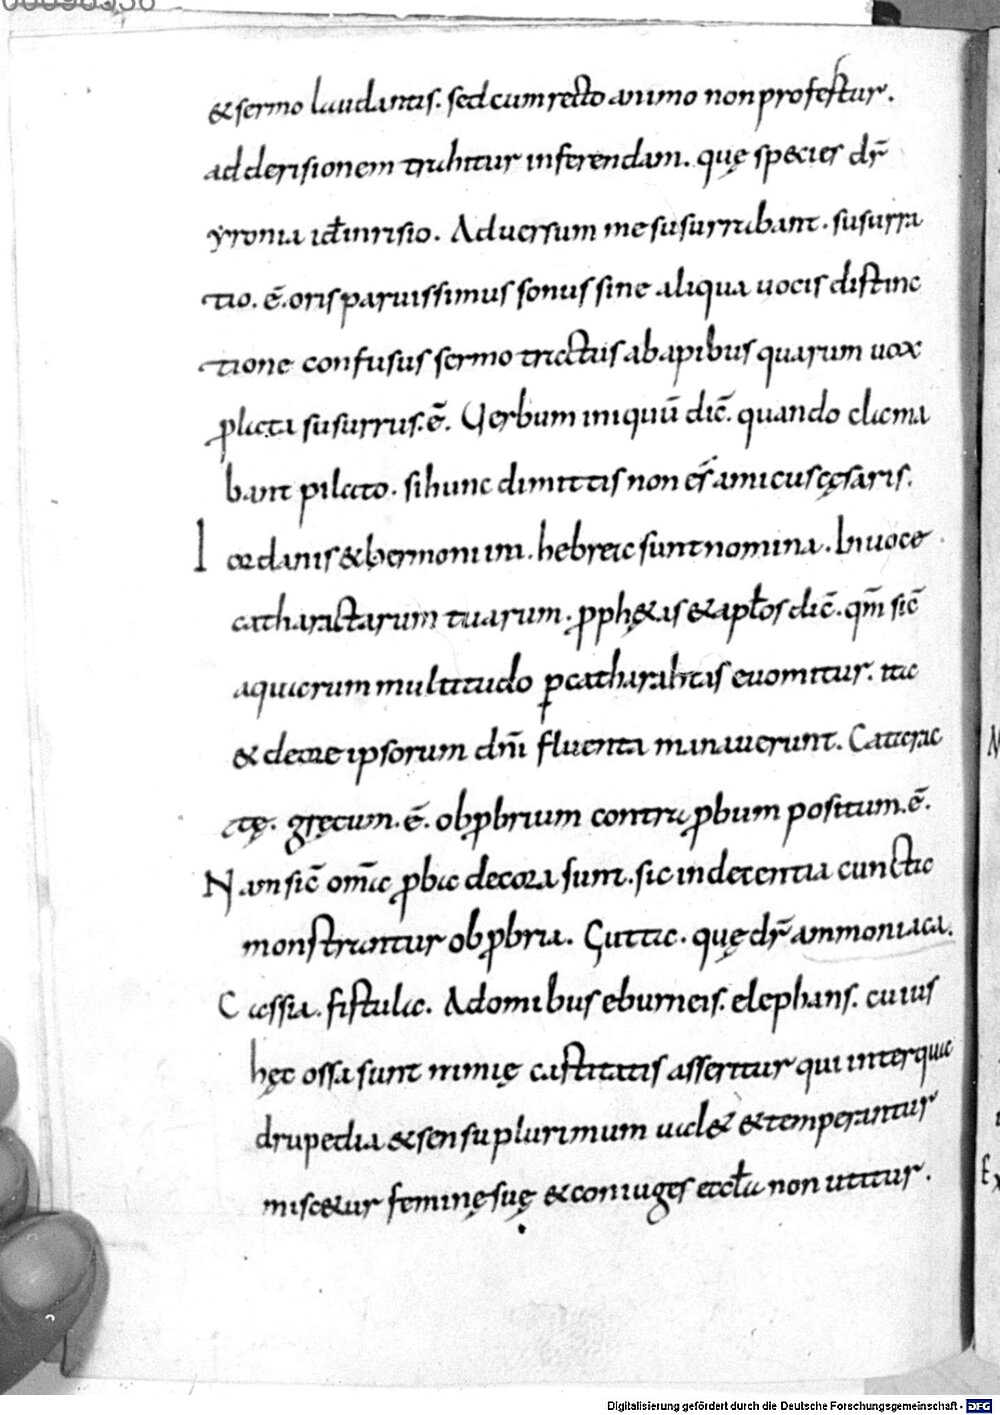 & sermo laudantis. sed cum recto animo non profertur.
ad derisionem trahitur inferendam. quę species dr̄
yronia id ÷ inrisio. Aduersum me susurrabant. susurra
tio. ē. oris paruissimus sonus sine aliqua uocis distinc
tione confusus sermo tractus ab apibus quarum uox
placata susurrus. ē. Uerbum iniquū dic̄. quando clama
bant pilato. si hunc dimittis non és amicus cęsaris.
Iordanis & hermoniim. hebreic sunt nomina. In uoce
catharactarum tuarum. pph&is & apłos dic̄. qm̄ sic̄
aquarum multitudo p catharactas euomitur. ita
& de ore ipsorum dn̄i fluenta manauerunt. Catarac
tę. gręcum. ē. obpbrium contra pbum positum. ē.
Nam sic̄ om̄ia pba decora sunt. sic indecentia cuncta
monstrantur obpbria. Guttae. quę dr̄ ammoniaca.
Cassia. fistula. A domibus eburneis. elephans. cuius
hęc ossa sunt nimię castitatis asseritur qui inter qua
drupedia & sensu plurimum ual& & temperantur
misc&ur feminę suę & coniuges eccła non utitur.
Digitalisierung gefördert durch die Deutsche Forschungsgemeinschaft - DFG